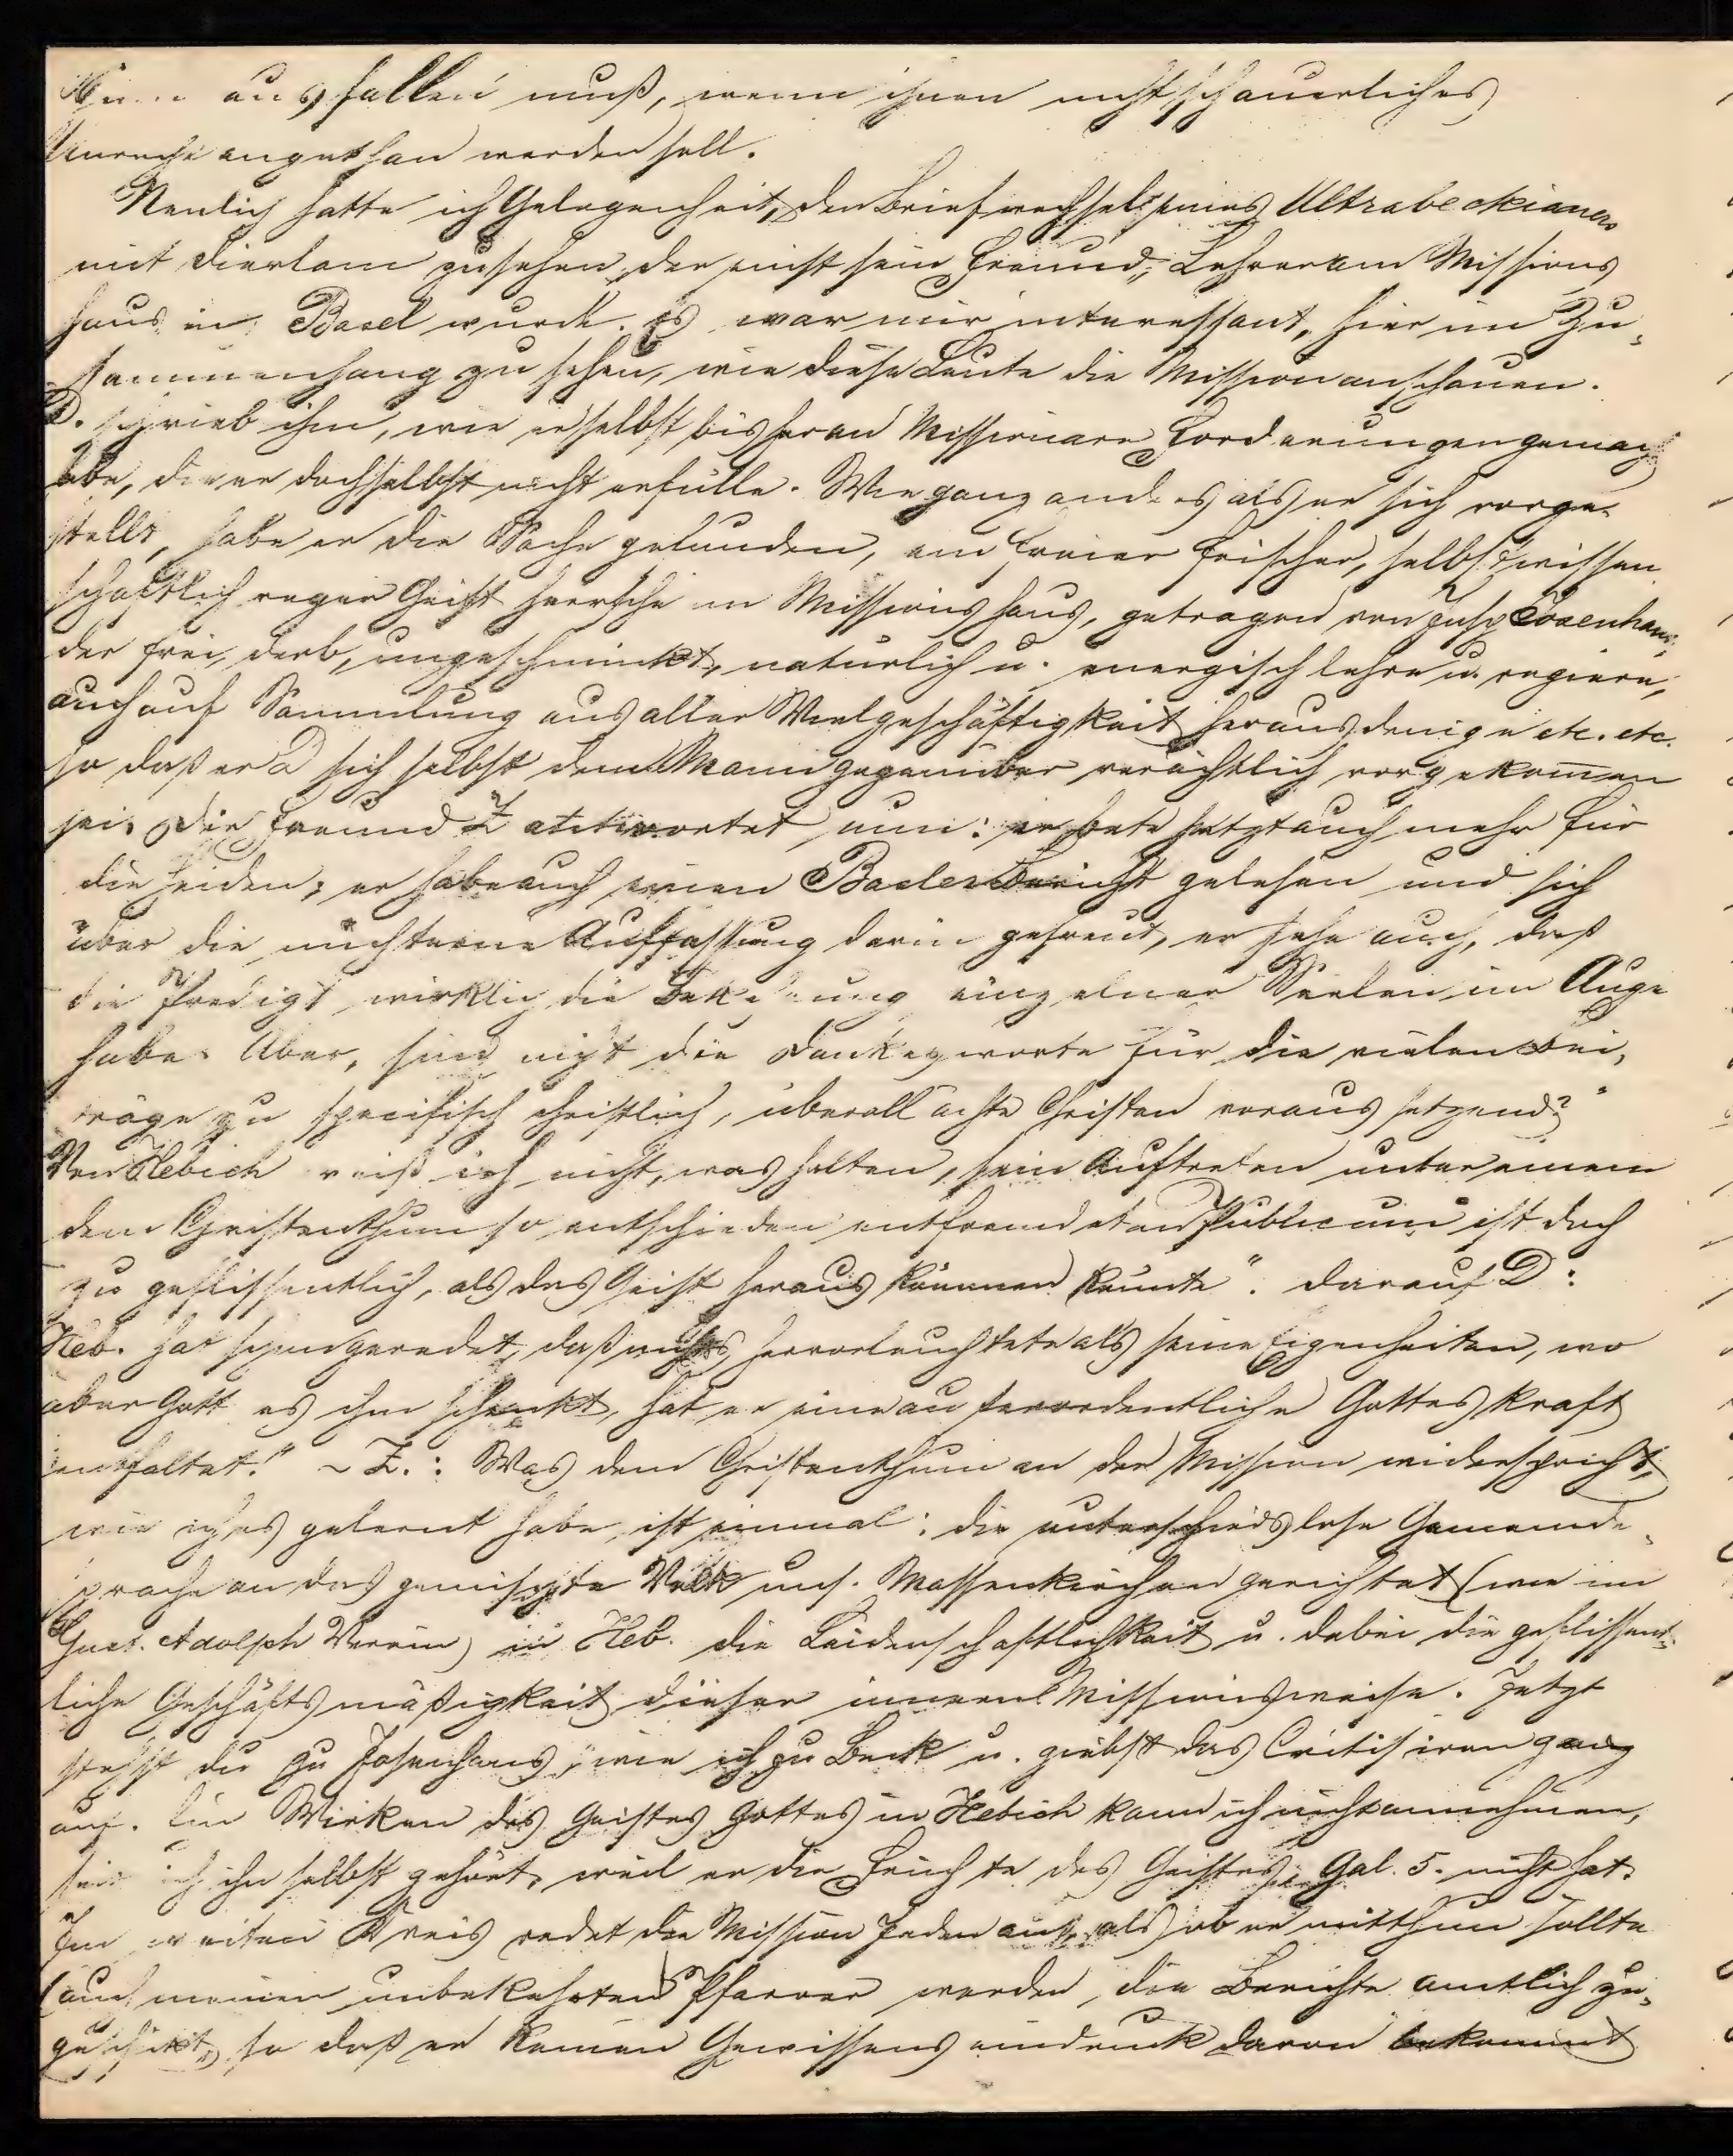 ausfallen muß, wenn ihnen nicht schauerliches
Unrecht angethan werden soll.
Neulich hatte ich Gelegenheit, den Briefwechsel eines Ultrabeckianers
mit Dierlam zu sehen, der einst sein Freund, Lehrer am Missions
haus in Basel wurde. Es war mir interessant, hier im Zu-
sammenhang zu sehen, wie diese Leute die Mission anschauen.
D. schrieb ihm, wie er selbst bisher an Missionare Forderungen gemacht
habe, die er doch selbst nicht erfülle. Wie ganz anders als er sich vorge-
stellt, habe er die Sache gefunden, ein freier frischer, selbst wissen
schaftlich reger Geist herrsche im Missionshaus, getragen von Insp Josenhans,
der frei, derb, ungeschminkt, natürlich u. energisch lehre u. regiere,
auch auf Sammlung aus aller Vielgeschäftigkeit heraus dringe etc. etc.
so daß er D sich selbst dem Mann gegenüber verächtlich vorgekom̅en
sei. Der Freund Z antwortet nun: er bete jetzt auch mehr für
die Heiden; er habe auch einen Basler Bericht gelesen und sich
über die nüchterne Auffassung darin gefreut, er sehe auch, daß
die Predigt wirklich die Bekehrung einzelner Seelen im Auge
habe. Aber, sind nicht die Dankesworte für die vielen Bei-
träge zu specifisch christlich, überall ächte Christen voraus setzend?"
Von Hebich weiß ich nicht, was halten, sein Auftreten unter einem
dem Christenthum so entschieden entfremdeten Publicum ist doch
zu geflissentlich, als daß Geist heraus kommen könnte". Darauf D:
Heb. hat schon geredet, daß nichts hervorleuchtete als seine Eigenheiten, wo
aber Gott es ihm schenkt, hat er eine außerordentliche Gotteskraft
entfaltet." ~ Z.: Was dem Christenthum an der Mission widerspricht,
wie ich es gelernt habe, ist einmal: die unterschiedslose Gemeinde-
sprache an das gemischte Volk uns. Massenkirchen gerichtet (wie im
Gust. Adolph Verein) in Heb. die Leidenschaftlichkeit u. dabei die geflissent-
liche Geschäftsmäßigkeit dieser innern Missionsweise. Jetzt
stehst du zu Josenhans, wie ich zu Beck u. giebst das Critisiren ganz
auf. Ein Wirken des Geistes Gottes in Hebich kann ich nicht annehmen,
seit ich ihn selbst gehört, weil er die Früchte des Geistes Gal. 5. nicht hat.
Im weiten Kreis redet die Mission Jeden an, als ob er mitthun sollte
(auch meinem unbekehrten Pfarrer werden die Berichte amtlich zu-
geschickt, so daß er keinen Gewissenseindruck davon bekommt